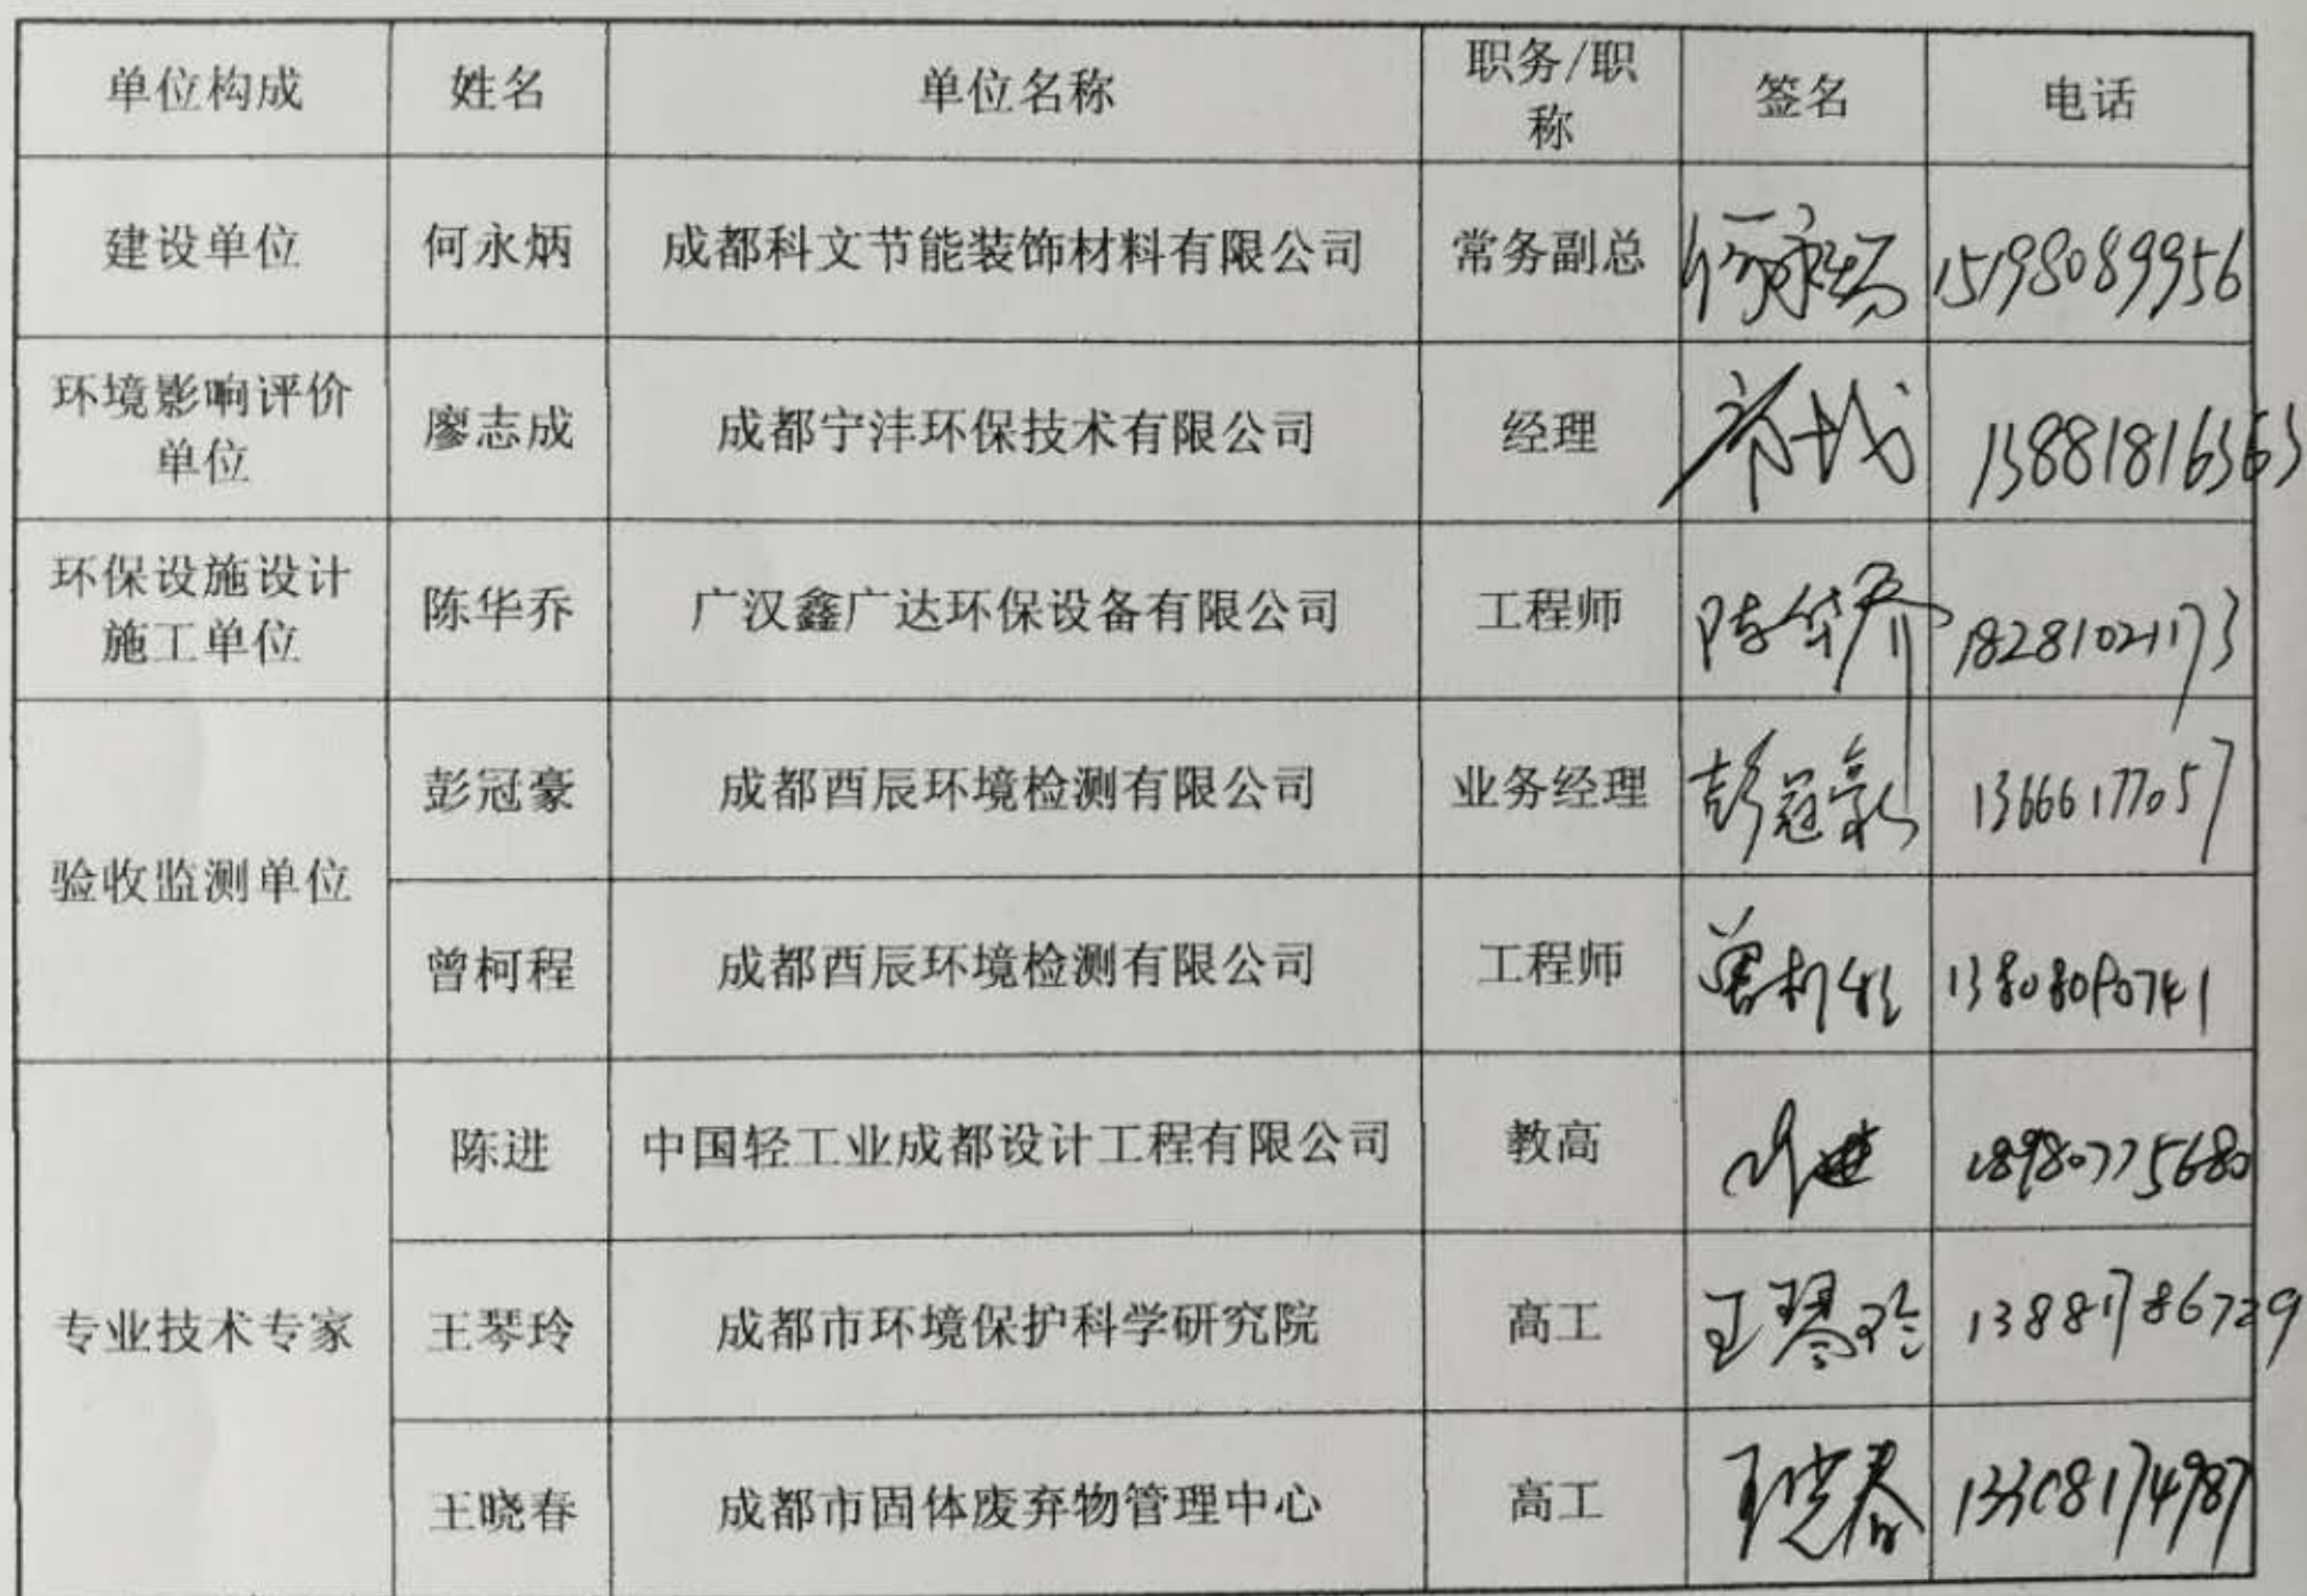 单位构成 姓名 单位名称 职务/职称 签名 电话
建设单位 何永炳 成都科文节能装饰材料有限公司 常务副总 何永炳 15198089956
环境影响评价单位 廖志成 成都宁沣环保技术有限公司 经理 13881816363
环保设施设计施工单位 陈华乔 广汉鑫广达环保设备有限公司 工程师 陈华乔 18281021173
验收监测单位 彭冠豪 成都酉辰环境检测有限公司 业务经理 彭冠豪 13666177057
曾柯程 成都酉辰环境检测有限公司 工程师 曾柯程
专业技术专家 陈进 中国轻工业成都设计工程有限公司 教高 陈进 18980775680
王琴玲 成都市环境保护科学研究院 高工 王琴玲 13881786729
王晓春 成都市固体废弃物管理中心 高工 王晓春 13308174987